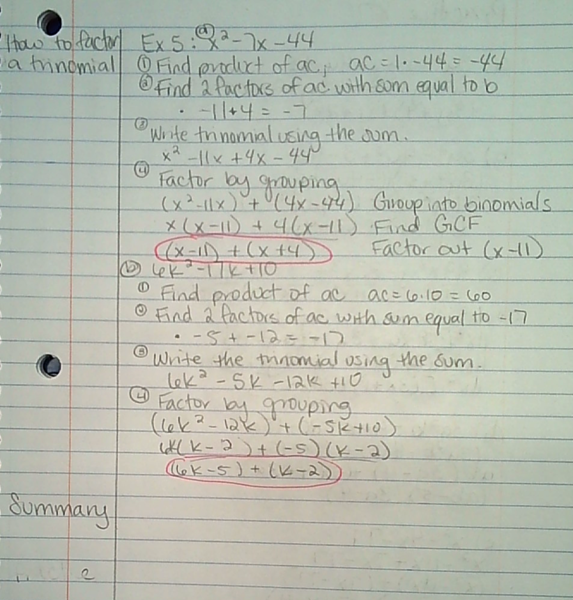 How to factor
a trinomial
Ex 5: ⓐ x² - 7x - 44
① Find product of ac, ac = 1 · -44 = -44
② Find 2 factors of ac with sum equal to b
· -11 + 4 = -7
③ Write trinomial using the sum.
x² - 11x + 4x - 44
④ Factor by grouping
(x² - 11x) + (4x - 44) Group into binomials
x(x - 11) + 4(x - 11) Find GCF
(x - 11) + (x + 4) Factor out (x - 11)
ⓑ 6k² - 17k + 10
① Find product of ac ac = 6 · 10 = 60
② Find 2 factors of ac with sum equal to -17
· -5 + -12 = -17
③ Write the trinomial using the sum.
6k² - 5k - 12k + 10
④ Factor by grouping
(6k² - 12k) + (-5k + 10)
6k(k - 2) + (-5)(k - 2)
(6k - 5) + (k - 2)
Summary